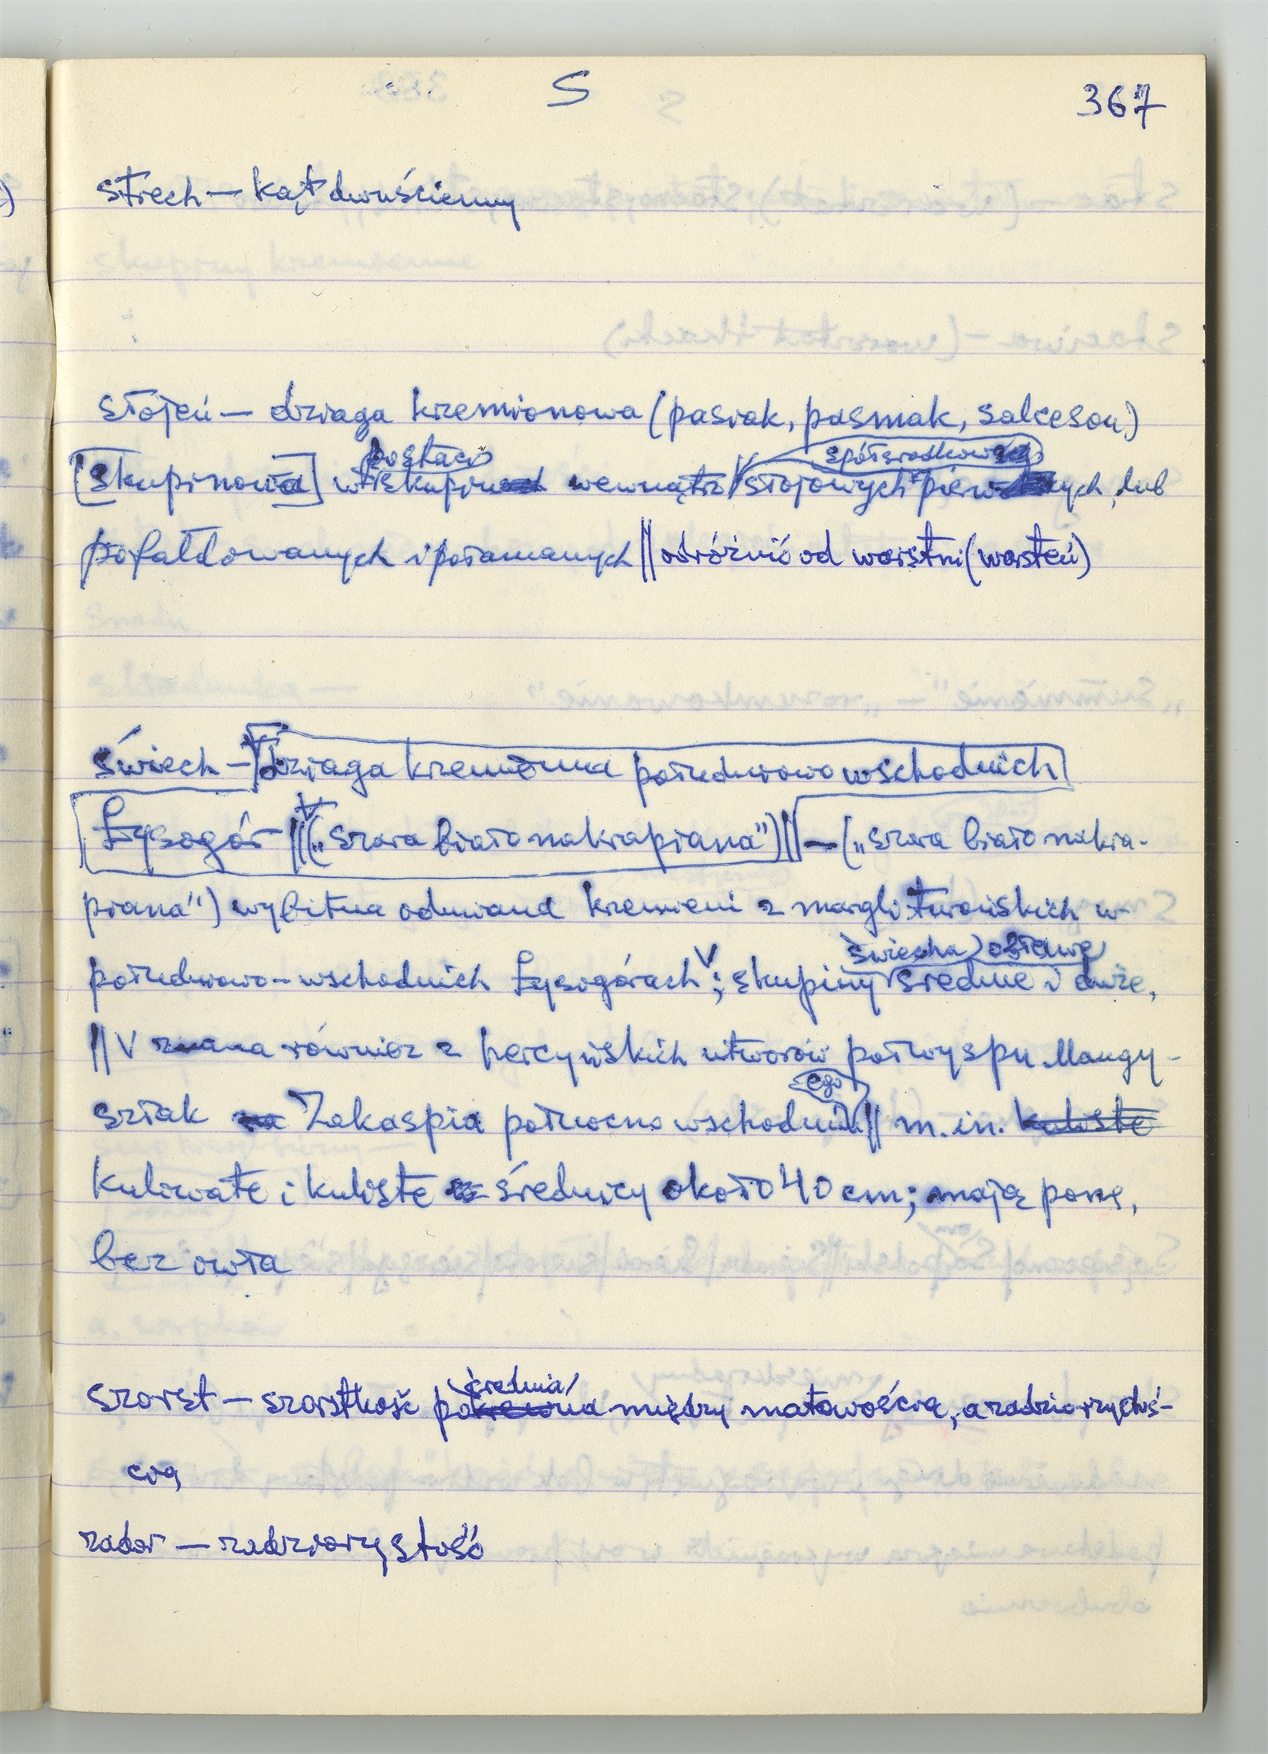 S
367
strech — kąt dwuścienny
słojeń — dziaga krzemionowa (pasiak, pasmak, salceson)
postaci spółśrodkowych
[skupinowa] w skupin wewnątrz słojowych pierw ych, lub
pofałdowanych i połamanych || odróżnić od warstni (warsteń)
świech — dziaga krzemienna południowo wschodnich
Łysogór || („szara biało nakrapiana") || — („szara biało nakra-
piana") wybitna odmiana krzemieni z margli turońskich w
świecha obławe
południowo-wschodnich Łysogórach V; skupiny średnie i duże,
|| V znana również z hercyńskich utworów półwyspu Mangy-
ego
szłak Zakaspia północno wschodni || m.in. kuliste
kuliwate i kuliste średnicy około 40 cm; mają porę,
bez
średnia
szorst — szorstkość pokrewna między matowością, a zadziorzystoś-
cią
zador — zadziorzystość